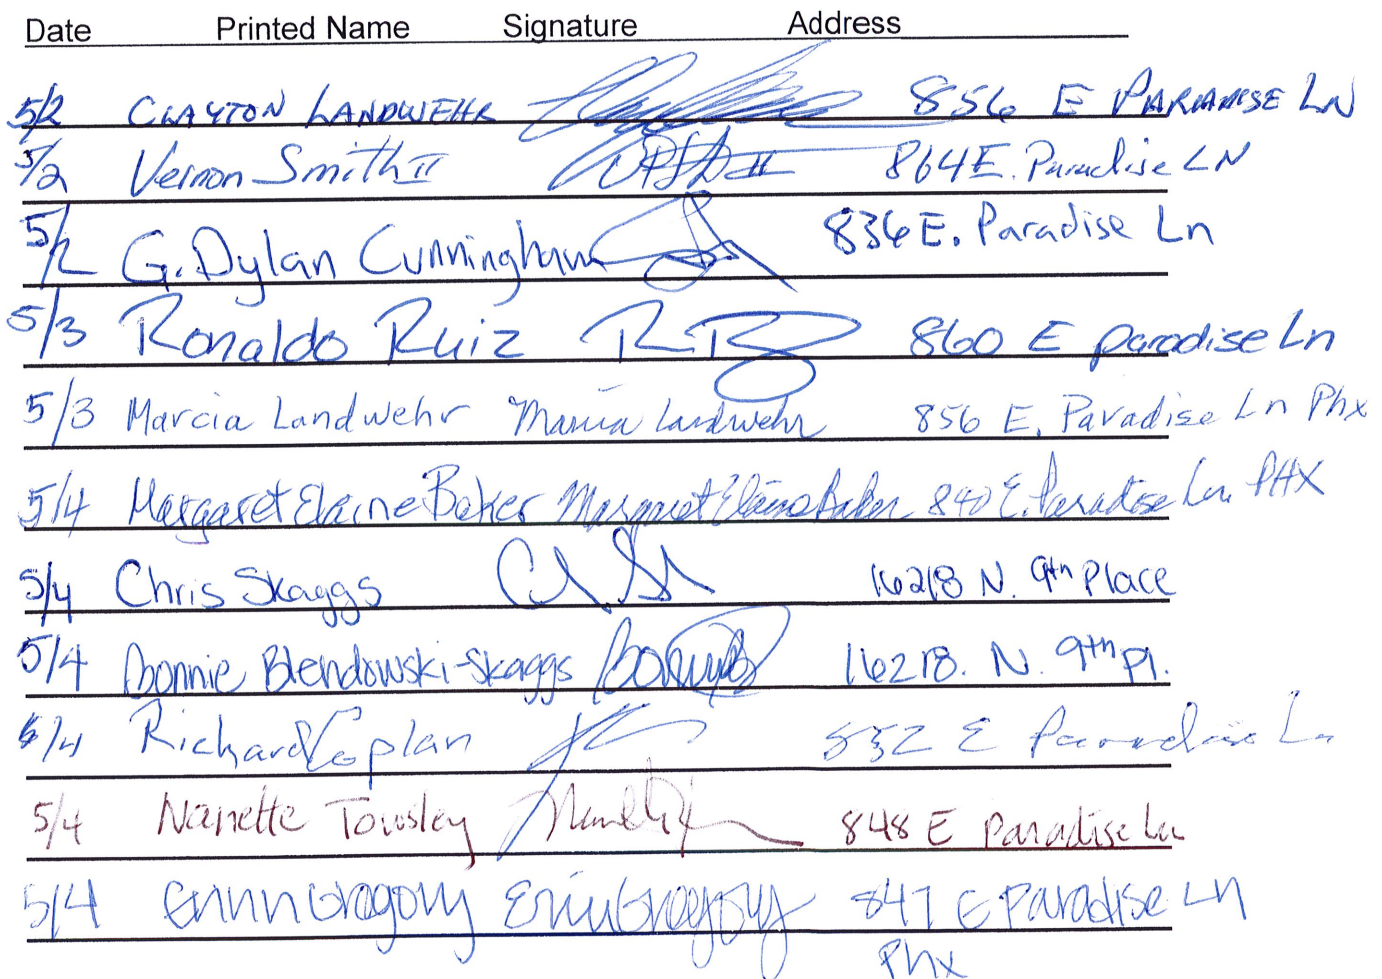 Date Printed Name Signature Address
5/2 CLAYTON LANDWEHR 856 E PARADISE LN
5/2 Vernon Smith II 864 E. Paradise LN
5/2 G. Dylan Cunningham 836 E. Paradise Ln
5/3 Ronaldo Ruiz 860 E paradise Ln
5/3 Marcia Landwehr Marcia Landwehr 856 E. Paradise Ln Phx
5/4 Margaret Elaine Baker Margaret Elaine Baker 840 E. Paradise Ln. PHX
5/4 Chris Skaggs 16218 N. 9th Place
5/4 Bonnie Blendowski-Skaggs 16218. N. 9th Pl.
5/4 Richard Coplan 832 E Paradise Ln
5/4 Nanette Towsley 848 E Paradise Ln
5/4 Gregory Erin Gregory 847 E Paradise Ln
Phx